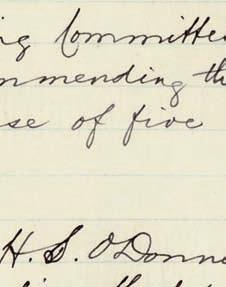 ng Committee
mmending th
se of five
H. S. O'Donne